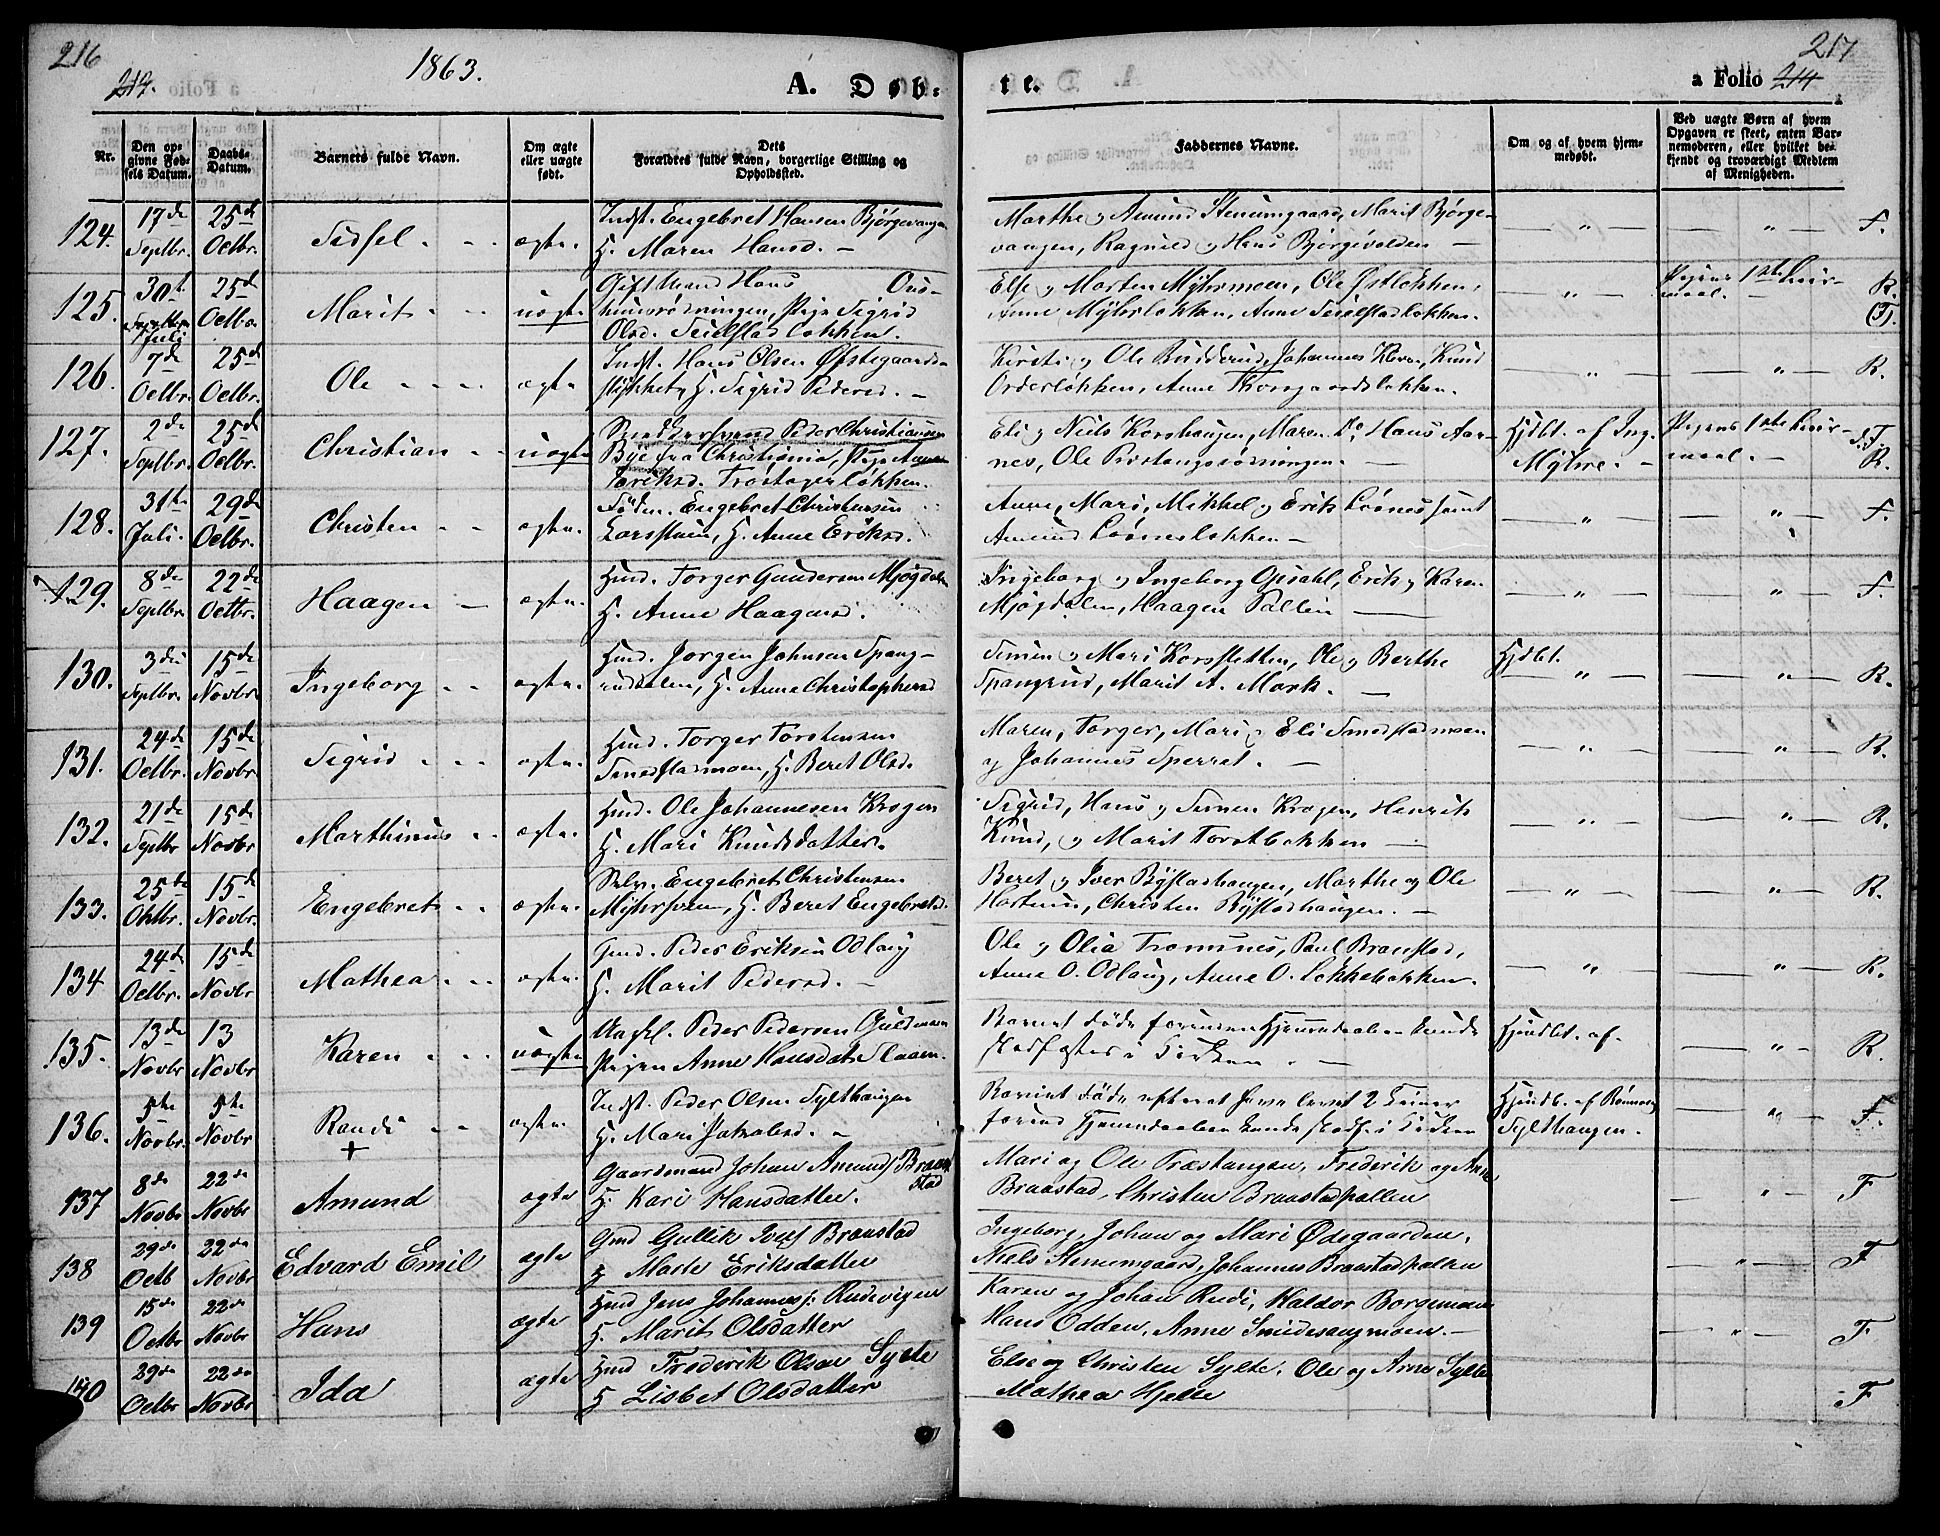 216
1863.
217
214.
A. Døb-
te.
a Folio 214
Nr.
Den op-
givne Fød-
sels Datum.
Daabs-
Datum.
Barnets fulde Navn.
Om ægte
eller uægte
født.
Dets
Forældres fulde Navn, borgerlige Stilling og
Opholdssted.
Faddernes Navne.
Om og af hvem hjem-
medøbt.
Ved uægte Børn af hvem
Opgaven er skeet, enten Bar-
nemoderen, eller hvilket be-
kjendt og troværdigt Medlem
af Menigheden.
124. 17de Septbr. 25de Octbr. Sidsel ægte. Indst. Engebret Hansen Bjørgevangen
H. Maren Hansd. —
Marthe og Amund Stenumgaard, Marit Bjørge-
vangen, Ragnild og Hans Bjørgevolden — " — " — F.
125. 30te Juli 25de Octbr. Marit uægte Gift Mand Hans
Pige Sigrid
Olsd.
Else og Morten Myhrmoen, Ole
Anne Myhrløkken, Anne — " — Pigens 1ste Leier-
maal. — R.
(F).
126. 7de Octbr. 25de Ole ægte Indst. Hans Olsen Østegaards-
stykket, H. Sigrid Pedersd. —
Kirsti og Ole Budderud, Johannes Knud
Anne — " — " — R.
127. 2de Septbr. 25de Octbr. Christian uægte Peder Christiansen
Bye fra Christiania, Pige Anne
Larsd. Trøstagerløkken.
Eli og Niels Korshaugen, Maren Do, Hans Aar-
nes, Ole — Hjdbt. af Ing.
Myhre. — Pigens 1ste Leier-
maal. — R.
128. 31te Juli. 29de Octbr. Christen ægte. Engebret Christensen
H. Anne Eriksd.
Anne, Mari, Mikkel og Erik Lønes samt
Amund Lønesløkken — " — " — F.
129. 8de Septbr. 22de Octbr. Haagen — ægte. Hmd. Torger Gundersen Mjøgdalen
H. Anne Haagensd.
Ingeborg og Ingeborg Opsahl, Erik og Karen
Mjøgdalen, Haagen Pallin — " — " — F.
130. 3die Septbr. 15de Novbr. Ingeborg ægte. Hmd. Jørgen Johnsen Spang-
ruddalen, H. Anne Christophersd
Simen og Mari Korsstetten, Ole og Berthe
Spangrud, Marit A. Mork. — Hjdbt.
" — " — R.
131. 24de Octbr. 15de Novbr. Sigrid ægte. Hmd. Torger Torstensen
Smedstadmoen, H. Beret Olsd.
Maren, Torger, Mari og Eli Smedstadmoen
og Johannes Sperret. — " — " — R.
132. 21de Septbr 15de Novbr Marthinus ægte. Hmd. Ole Johannesen Krogen
H. Mari Knudsdatter.
Sigrid, Hans og Simen Krogen, Henrik
Knud, og Marit Torstbakken — " — " — R.
133. 25de Oktbr. 15de Novbr. Engebret ægte. Selv. Engebret Christensen
Myhrsveen, H. Beret Engebretsd.
Beret og Iver Bystadhaugen, Marthe og Ole
Christen Bystadhaugen. — " — " — R.
134 24de Octbr. 15de Novbr Mathea ægte. Gmd. Peder Eriksen Odlaug
H. Marit Pedersd. —
Ole og Olia Tromsnes, Paul Braastad,
Anne O. Odlaug, Anne O. Løkkebakken. — " — " — R.
135. 13de Novbr 13 Novbr Karen uægte Ungk. Peder Pedersen Guldmoen
Pigen Anne Hansdat. Slaaen.
Barnet døde forinden Hjemmedaaben kunde
stadfæstes i Kirken. — Hjmdbt. af — " — R.
136. 5te Novbr. 5te Novbr. Randi + ægte. Indst. Peder Olsen Sylthaugen
H. Mari Jakobsd. —
Barnet døde efter at have levet 2 Timer
forind Hjemmedaaben kunde stadf. i Kirken Hjmdb. af
Sylthaugen. — " — F.
137 8de Novbr 22de Novbr Amund ægte Gaardmand Johan Amunds. Braa-
stad
H. Kari Hansdatter.
Mari og Ole Træstangen, Frederik og Anne
Braastad, Christen Braastadpallen — " — F
138 29de Octb 22de Novbr Edvard Emil ægte Gmd Gullik Ivers. Braastad
H Marte Eriksdatter
Ingeborg, Johan og Mari Ødegaarden,
Niels Stenumgaard, Johannes Braastadpallen — " — F
139 15de Octbr 22de Novbr Hans ægte Hmd Jens Johanness. Rudivigen
H. Marit Olsdatter
Karen og Johan Rudi, Haldor Borgemoen
Hans Odden, Anne Smidesangmoen. — — " — F
140 29de Octbr 22de Novbr Ida ægte Hmd Frederik Olsen Sylte
H Lisbet Olsdatter
Else og Christen Sylte, Ole og Arne Sylte
Mathea Hjelle — F